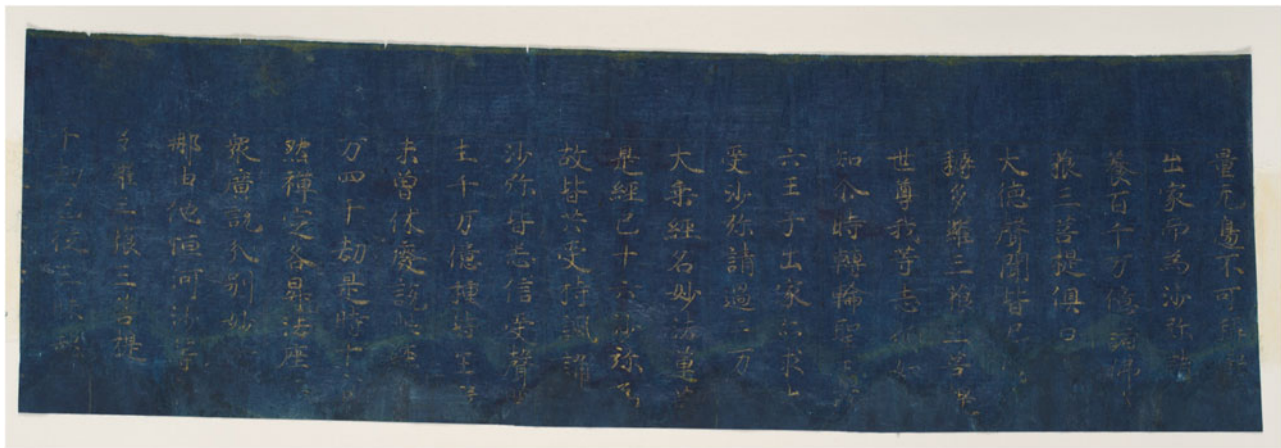 量无邊不可稱
出家而為沙弥諸
養百千万億諸佛
藐三菩提俱白
大德聲聞皆已
耨多羅三藐三菩
世尊我等志願如
知尒時轉輪聖
六王子出家亦求
受沙弥請過二万
大乘經名妙法蓮華
是經已十六沙弥為
故皆共受持諷誦
沙弥皆悉信受聲
生千万億種皆生
未曾休廢說此經
万四千劫是時十六
然禪定各昇法座
衆廣說分別妙
那由他恒河沙等
多羅三藐三菩提
劫已從三昧